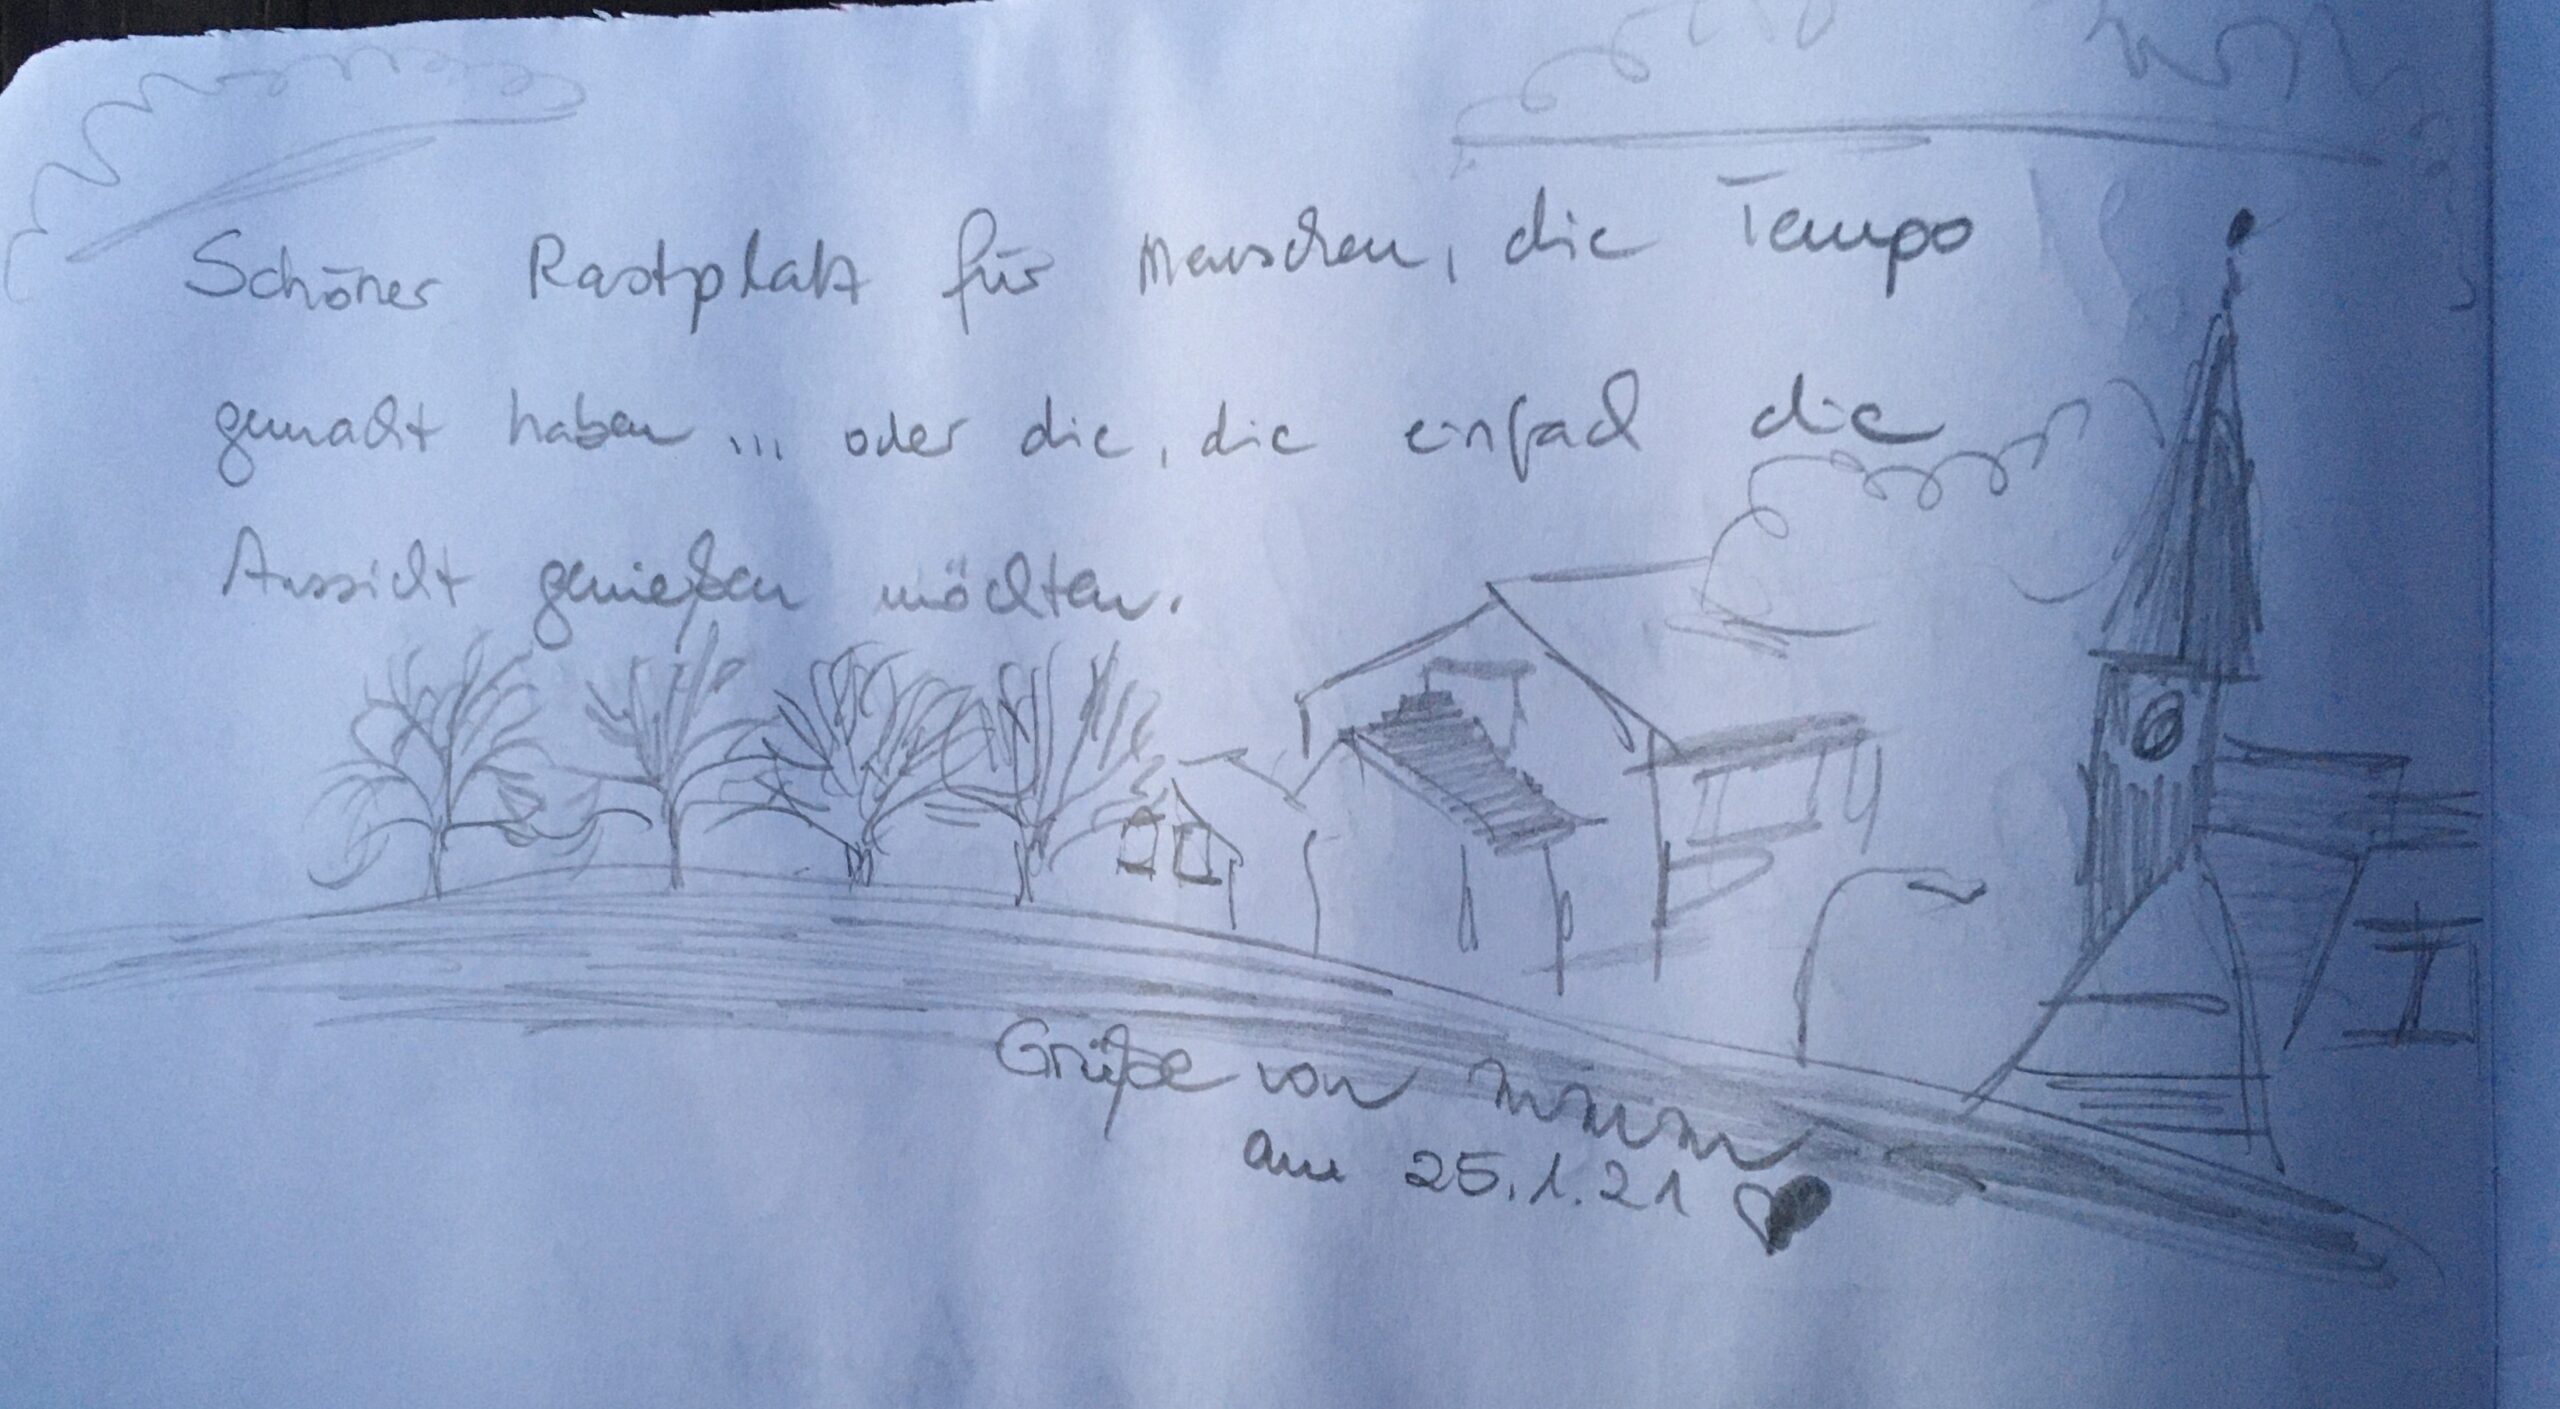 Schöner Rastplatz für Menschen, die Tempo
gemacht haben ... oder die, die einfach die
Aussicht genießen möchten.
Grüße von
am 25.1.21